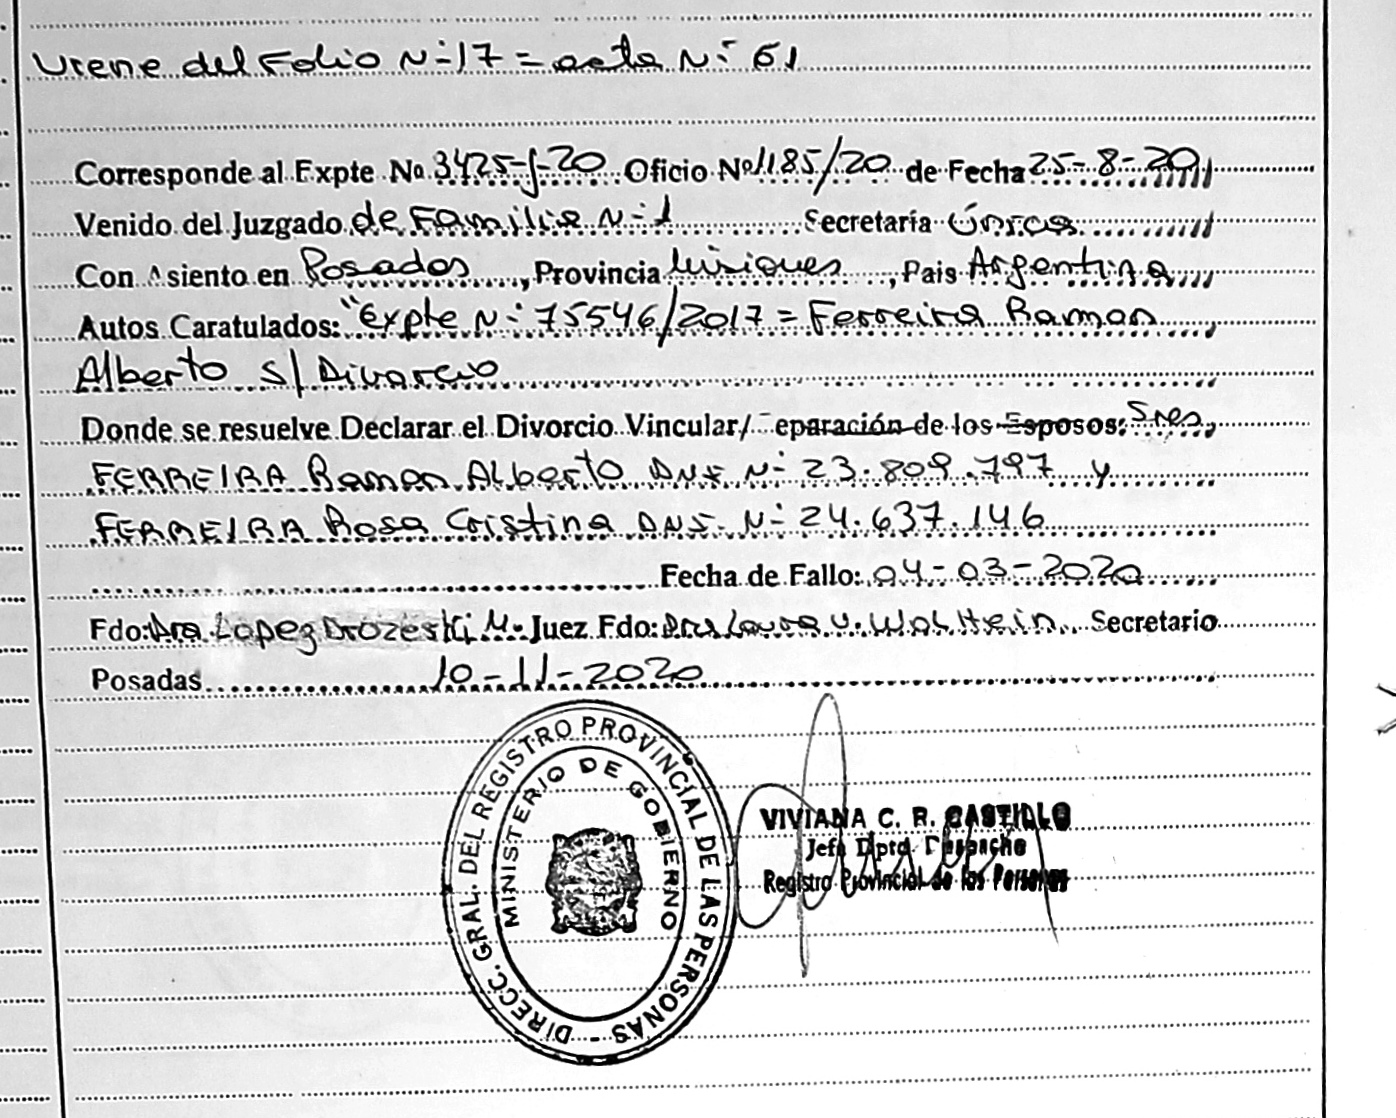 Viene del Folio N- 17 = acta N- 61
Corresponde al Expte No 3425-J-20 Oficio Nº 1185/20 de Fecha 25-8-20
Venido del Juzgado de Familia N- 1 Secretaría Única
Con Asiento en Posadas, Provincia Misiones, Pais Argentina
Autos Caratulados: "Expte N- 75546/2017 = Ferreira Ramon
Alberto s/ Divorcio
Donde se resuelve Declarar el Divorcio Vincular/ Separación de los Esposos: Sres
FERREIRA Ramon Alberto DNI N- 23.809.797 y
FERREIRA Rosa Cristina DNI. N- 24.637.146
Fecha de Fallo: 04-03-2020
Fdo: Dra Lopez Drozeski M. Juez Fdo: Dra Laura V. Secretario
Posadas 10-11-2020
DIRECC. GRAL. DEL REGISTRO PROVINCIAL DE LAS PERSONAS -
MINISTERIO DE GOBIERNO
VIVIANA C. R. CASTILLO
Jefa Dpto. Despacho
Registro Provincial de las Personas